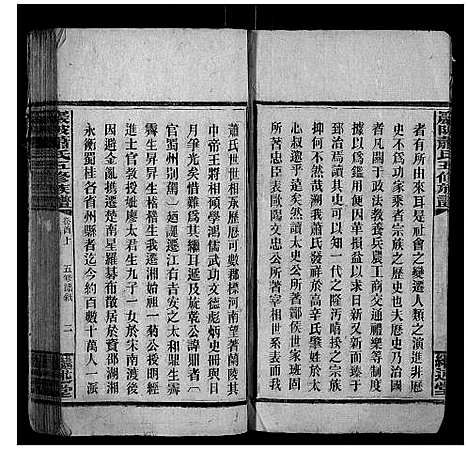 者有所由來耳是社會之變遷人類之演進非歷
史不爲功家乘者宗族之歷史也夫歷史乃治國
者凡關于政法教養兵農工商交通禮樂等制度
據以爲鑑用便因革損益以求日新又新而臻于
郅治焉讀其史可以知一代之隆汚唔揆之宗族
間何獨不然哉溯我蕭氏發祥於高辛氏肇姓於太
心叔遐乎是矣然讀太史公所著酇侯世家班固
所著忠臣表歐陽文忠公所著宰相世系表而我
蕭氏世世相承歷歷可數郡標河南望著蘭陵其
中帝王將相傾學鴻儒武功文德彪炳史冊與日
月爭光矣惜譜以及旋宗公諱鼎者
官蜀州別駕
霽生昇昇生格格生我遷湘始祖一菊公授明經
進士官教授妣廖太君生九子一女於宋南渡後
因避金亂攜遷楚南星羅碁布散居於資邵湖湘
永衡蜀桂各省州縣者迄今約百數十萬人一派
蕭氏五修族譜
卷首上
五修源敘
二